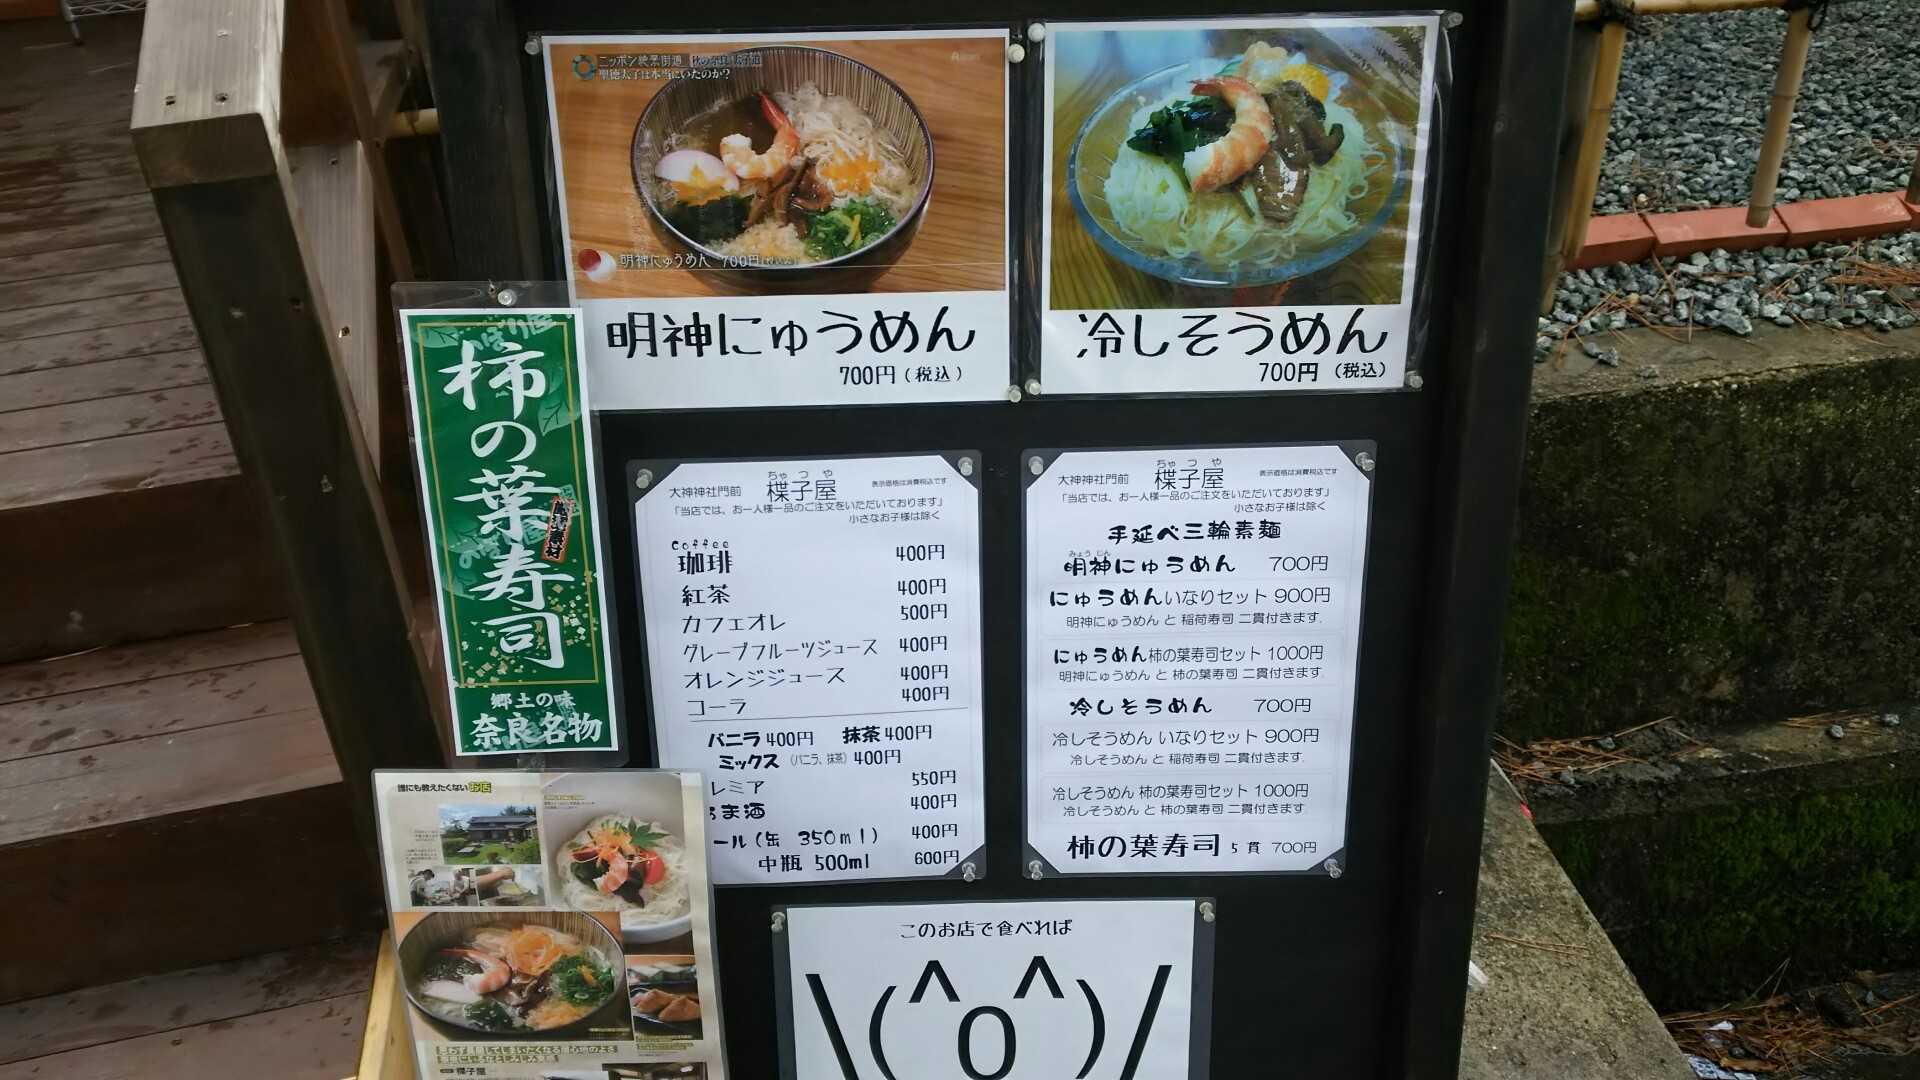 ニッポン絶景街道
聖徳太子は本当にいたのか?
明神にゅうめん 700円(税込み)
明神にゅうめん
700円(税込)
冷しそうめん
700円(税込)
柿の葉寿司
厳選素材
郷土の味
奈良名物
ちゃつや
大神神社門前 楪子屋 表示価格は消費税込です
「当店では、お一人様一品のご注文をいただいております」
小さなお子様は除く
coffee
珈琲 400円
紅茶 400円
カフェオレ 500円
グレープフルーツジュース 400円
オレンジジュース 400円
コーラ 400円
バニラ 400円 抹茶 400円
ミックス(バニラ、抹茶) 400円
レミア 550円
ま酒 400円
ール(缶 350ml) 400円
中瓶 500ml 600円
ちゃつや
大神神社門前 楪子屋 表示価格は消費税込です
「当店では、お一人様一品のご注文をいただいております」
小さなお子様は除く
手延べ三輪素麺
みょうじん
明神にゅうめん 700円
にゅうめんいなりセット 900円
明神にゅうめん と 稲荷寿司 二貫付きます.
にゅうめん柿の葉寿司セット 1000円
明神にゅうめん と 柿の葉寿司 二貫付きます.
冷しそうめん 700円
冷しそうめん いなりセット 900円
冷しそうめん と 稲荷寿司 二貫付きます.
冷しそうめん 柿の葉寿司セット 1000円
冷しそうめん と 柿の葉寿司 二貫付きます.
柿の葉寿司 5貫 700円
誰にも教えたくないお店
思わず長居してしまいたくなる居心地のよさ
楪子屋
このお店で食べれば
\(^o^)/